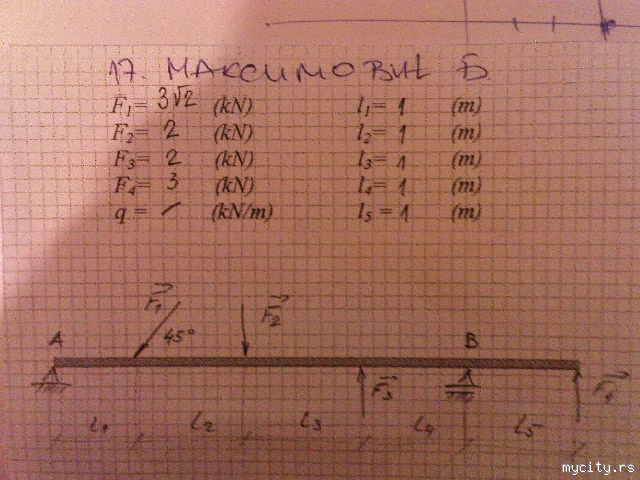 17. МАКСИМОВИЋ Б.
F₁= 3√2 (kN) l₁= 1 (m)
F₂= 2 (kN) l₂= 1 (m)
F₃= 2 (kN) l₃= 1 (m)
F₄= 3 (kN) l₄= 1 (m)
q = / (kN/m) l₅ = 1 (m)
F₁ F₂
45°
A B
F₃ F₄
l₁ l₂ l₃ l₄ l₅
mycity.rs